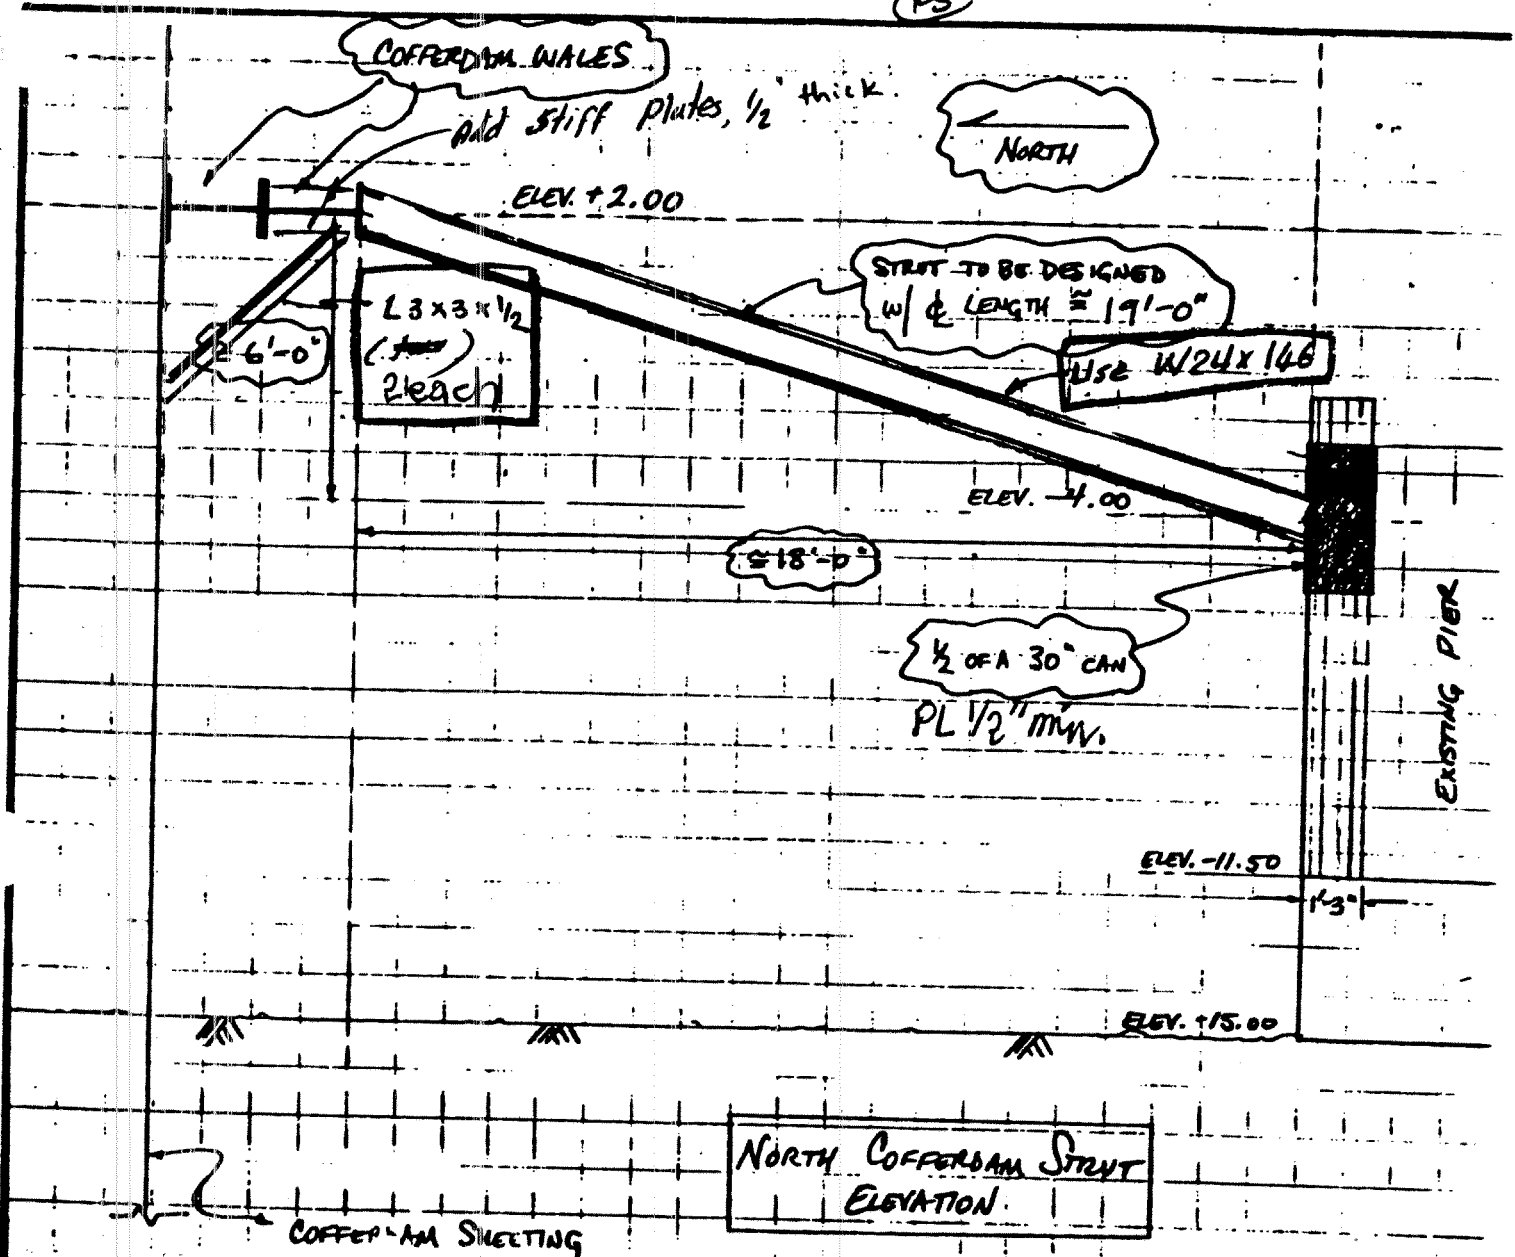 P3
COFFERDAM WALES
Add stiff Plates, 1/2" thick.
NORTH
ELEV. +2.00
STRUT TO BE DESIGNED
w/ ℄ LENGTH ≅ 19'-0"
USE W24 x 146
L 3 x 3 x 1/2
2 each
≅ 6'-0"
ELEV. -4.00
≅ 18'-0"
1/2 OF A 30" CAN
PL 1/2" min.
EXISTING PIER
ELEV. -11.50
1'-3"
ELEV. +15.00
NORTH COFFERDAM STRUT
ELEVATION.
COFFERDAM SHEETING